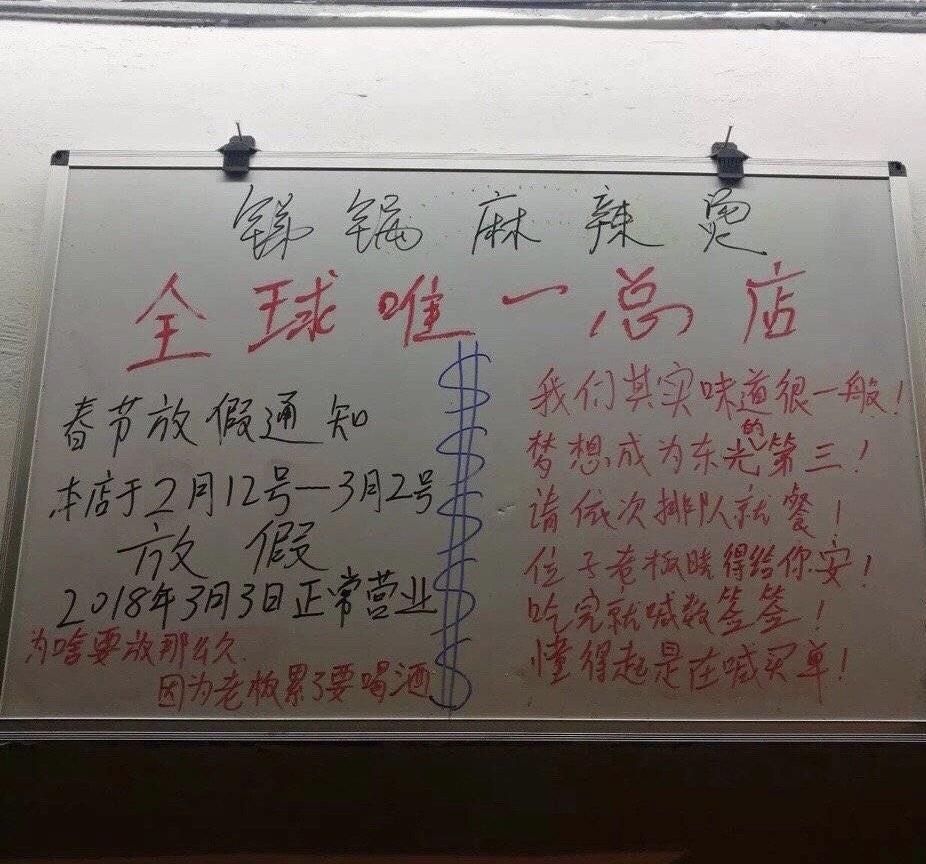 锑锅麻辣烫
全球唯一总店
春节放假通知
本店于2月12号一3月2号
放假
2018年3月3日正常营业
为啥要放那么久
因为老板累了要喝酒
我们其实味道很一般!
梦想成为东光的第三!
请依次排队就餐!
位子老板晓得给你安!
吃完就喊数签签!
懂得起是在喊买单!